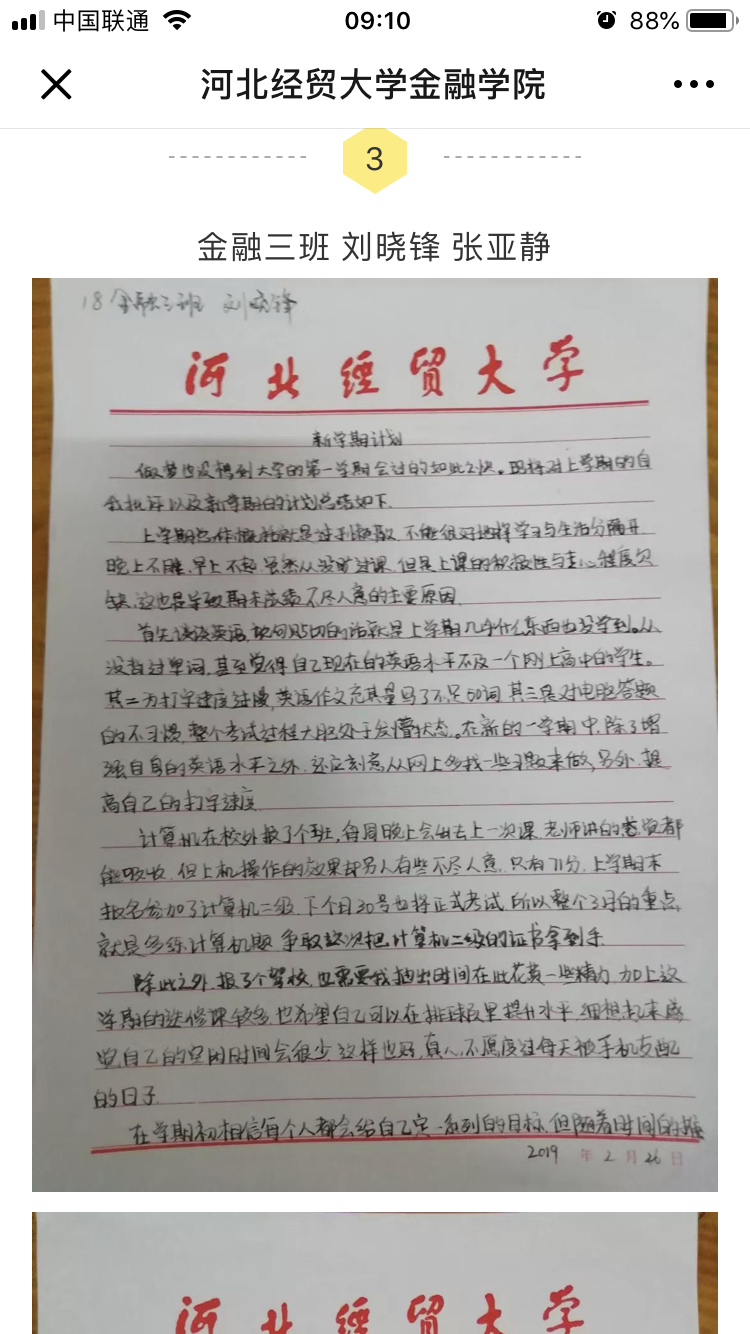 中国联通
09:10
88%
河北经贸大学金融学院
3
金融三班 刘晓锋 张亚静
18金融三班 刘晓锋
河北經貿大学
新学期计划
做梦也没想到大学的第一学期会过的如此之快。现将对上学期的自
我批评以及新学期的计划总结如下
上学期总体概括就是过于懒散 不能很好地将学习与生活分隔开
晚上不睡 早上不起 虽然从没旷过课 但是上课的积极性与专心程度欠
缺,这也是导致期末成绩不尽人意的主要原因
首先谈谈英语,说句贴切的话就是上学期几乎什么东西也没学到。从
没背过单词,甚至觉得自己现在的英语水平不及一个刚上高中的学生。
其二为打字速度过慢,英语作文充其量写了不足50词 其三是对电脑答题
的不习惯,整个考试过程大脑处于发懵状态。在新的一学期中,除了增
强自身的英语水平之外 还应刻意从网上多找一些习题来做,另外,提
高自己的打字速度
计算机在校外报了个班,每周晚上会出去上一次课 老师讲的感觉都
能吸收,但上机操作的效果却另人有些不尽人意 只有71分,上学期末
报名参加了计算机二级 下个月30号也将正式考试 所以整个3月的重点
就是多练计算机题 争取这次把计算机二级的证书拿到手
除此之外,报了个驾校,也需要我抽出时间在此花费一些精力,加上这
学期的选修课较多,也希望自己可以在排球
里提升水平,细想起来感
觉自己的空闲时间会很少,这样也好,真心不愿度过每天被手机支配
的日子
在学期初相信每个人都会给自己定一系列的目标,但随着时间的推
2019 年 2 月 26 日
河北經貿大学